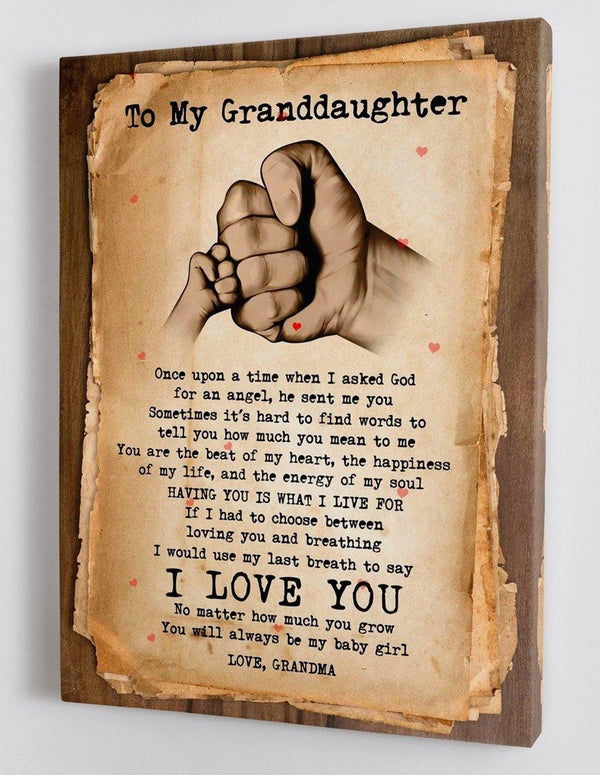 To My Granddaughter
Once upon a time when I asked God
for an angel, he sent me you
Sometimes it's hard to find words to
tell you how much you mean to me
You are the beat of my heart, the happiness
of my life, and the energy of my soul
HAVING YOU IS WHAT I LIVE FOR
If I had to choose between
loving you and breathing
I would use my last breath to say
I LOVE YOU
No matter how much you grow
You will always be my baby girl
LOVE, GRANDMA